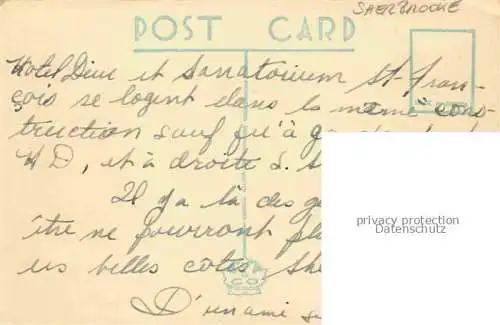 SHERBROOKE
POST CARD
Hotel Dieu et Sanatorium St-Fran-
çois se logent dans la même cons-
truction sauf qu'à
H D, et à droite S.
Il y a là des
être ne pourront
belles côtes She
D'un ami
privacy protection
Datenschutz